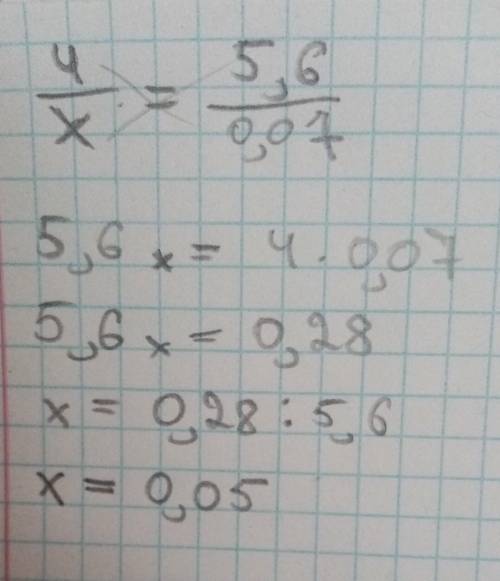 4/x = 5,6/0,07
5,6 x = 4 · 0,07
5,6 x = 0,28
x = 0,28 : 5,6
x = 0,05